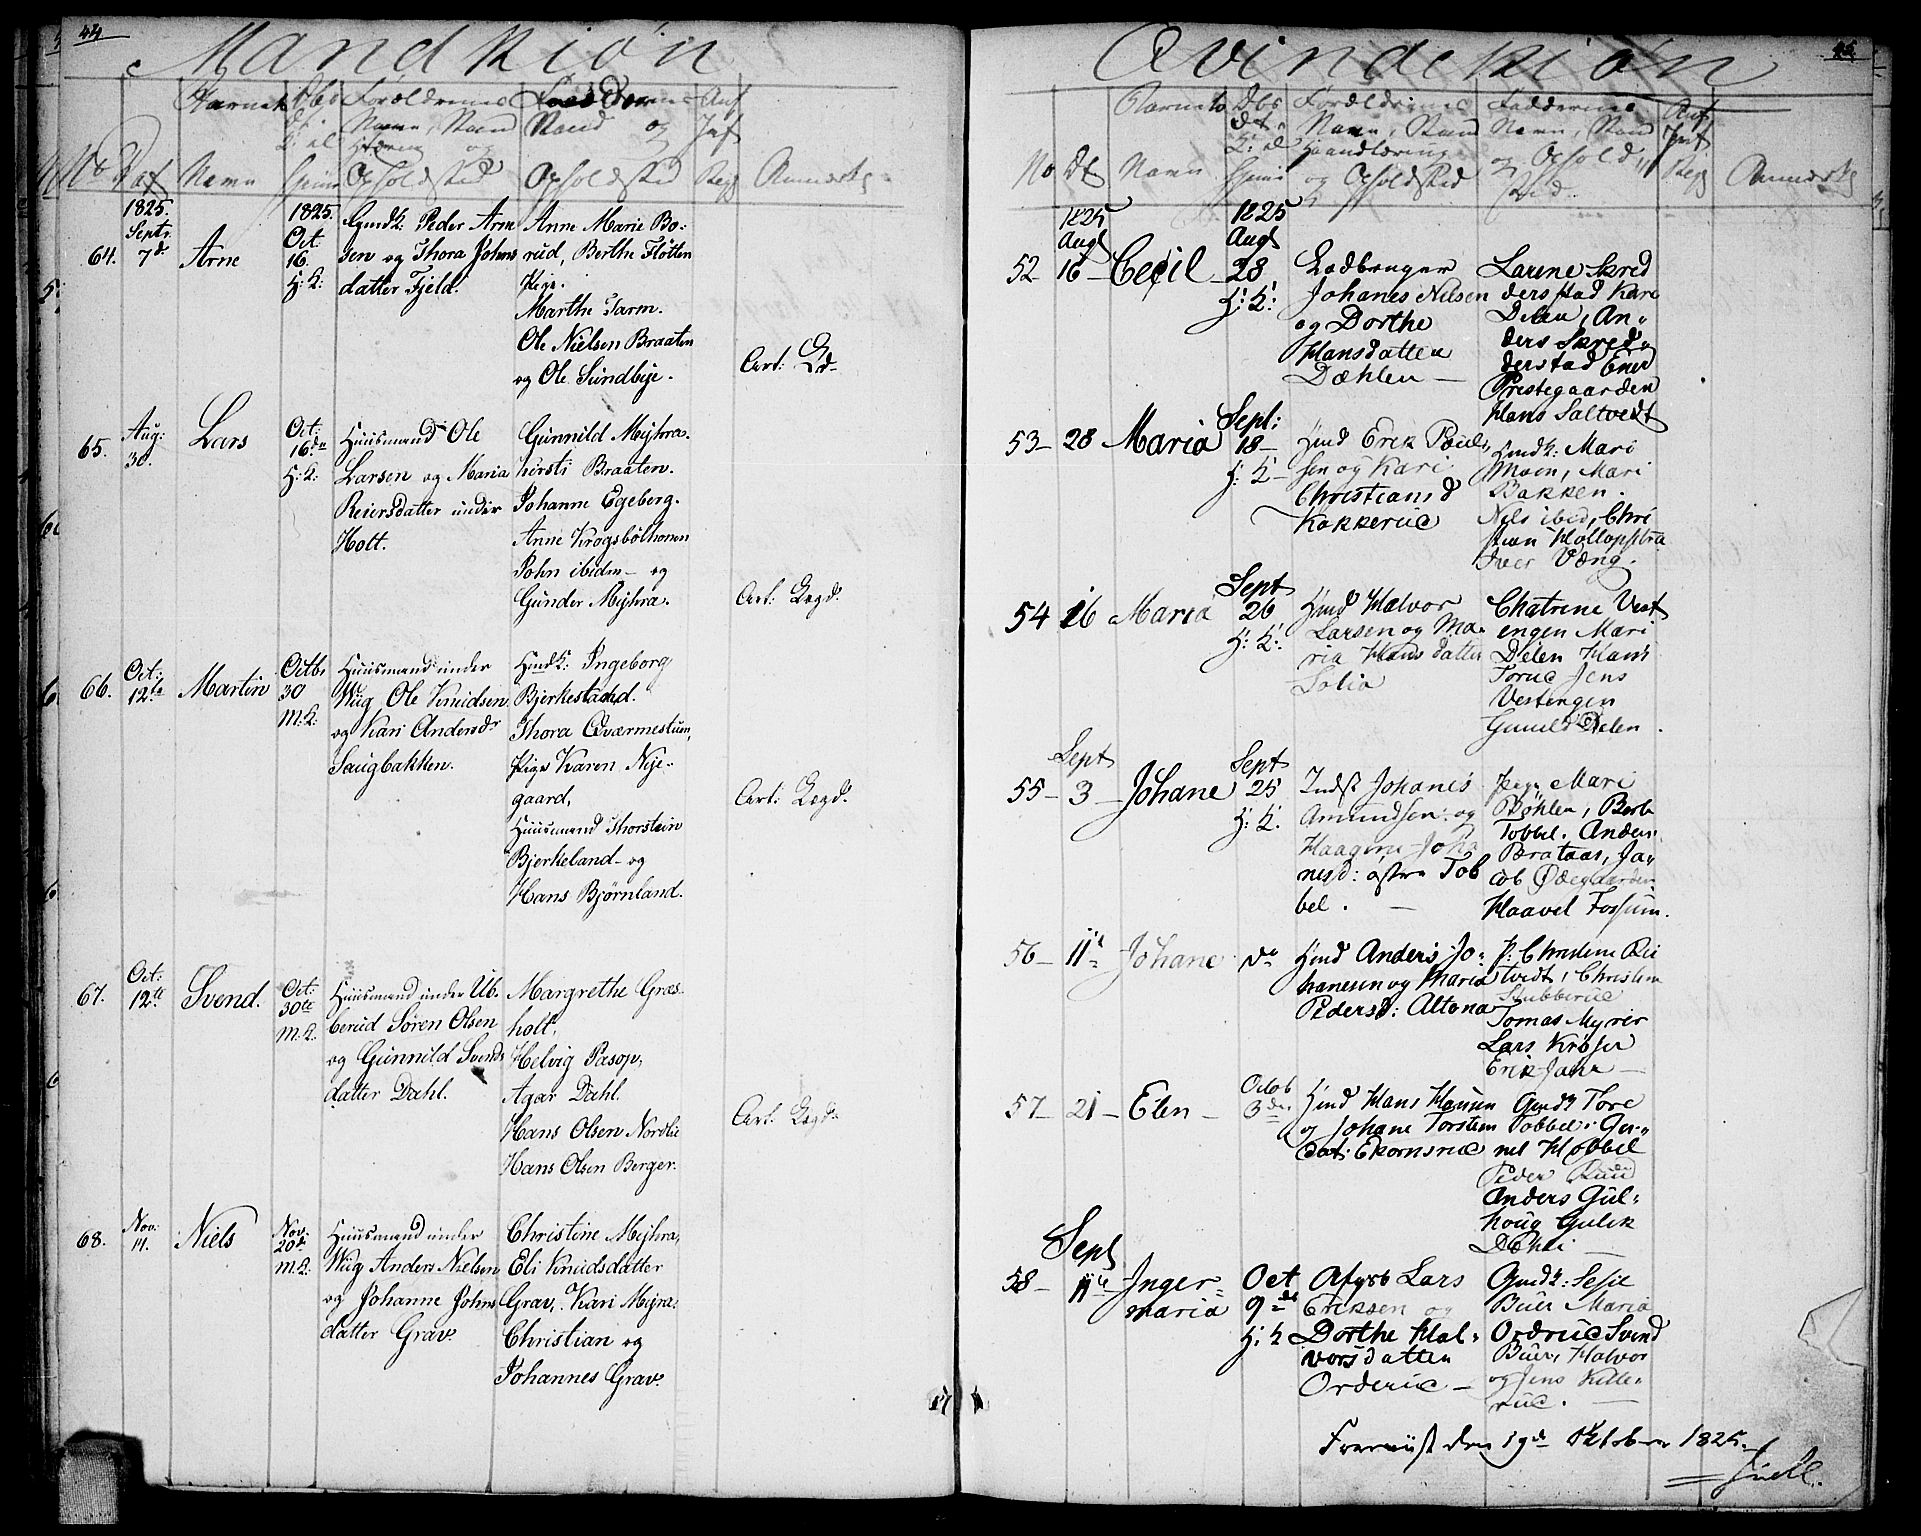 44
Mandkiøn
No Dag Navn Opholdsted Opholdsted
1825. Septr. 7de
64. Arne
1825. Oct. 16. H: K:
Gmdk: Peder Arne
sen og Thora Johns
datter Fjeld.
Anne Marie Bo:
rud, Berthe Flotten
Pige.
Marthe Tarm.
Ole Nielsen Braaten
og Ole Sundbye.
Cert:
65. Aug: 30. Lars
Oct: 16de H: K:
Huusmand Ole
Larsen og Maria
Reiersdatter under
Holt.
Gunnild Mijhra.
Kirsti Braaten.
Johanne Egeberg.
Anne Krogsbölhonen
John ibidm – og
Gunder Mijhra.
Cert: Lægd.
66. Oct: 12te Martin
Octbr 30 M: K:
Huusmand under
Wüg Ole Knudsen
og Kari Andersdr
Saugbakken.
Hmdk: Ingeborg
Bjerkestand.
Thora Qværnestuen,
Pige Karen Nye-
gaard,
Huusmand Thorstein
Bjerkeland – og
Hans Bjørnland.
Cert: Lægd.
67. Oct: 12te Svend.
Oct: 30te M: K.
Huusmand under Ub-
berud Søren Olsen
og Gunnild Svends
datter Dahl.
Margrethe Græs-
holt,
Helvig Pasop,
Agar Dahl.
Hans Olsen Nordlie
Hans Olsen Berger.
Cert. Lægd.
68. Nov: 11. Niels
Nov: 20de M: K:
Huusmand under
Wüg Anders Nielsen
og Johanne Johns
datter Grav.
Christine Mijhra,
Eli Knudsdatter
Grav, Kari Mijra.
Christian og
Johannes Grav.
45
Qvindekiøn
No Dt Navn og Opholdsted
1825 Augt
52 – 16 – Cecil
1825 Augt 28 H: K:
Ledbruger
Johanes Nilsen
og Dorthe
Hansdatten
Dæhlen –
Larine Skred
derstad Kari
Delen, An-
ders Skred-
derstad Ener
Prestegaarden
Hans Saltvedt
53 – 28 Maria
Sept: 18 – H: K –
Hmd Erik Paul-
sen og Kari
Christiansd
Kokkerud
Hmdk: Mari
Moen, Mari
Bakken.
Nels ibid, Chri
stian
Iver Væng.
54 16 Maria
Sept 26 H: K:
Hmd Halvor
Larsen og Ma-
ria Hansdatter
Solia
Chatrine Vest
engen Mari
Delen Hans
Torud Jens
Vestengen
Gunild Delen.
Sept
55 – 3 – Johane
Sept 25 H: K.
Indst Johanes
Amundsen og
Haagine Joha
nesd: østre Tob
bel. –
Pige Mari
Bøhlen, Berte
Tobbel. Anders
Brataas, Ja-
cob Ødegaarden
Haavel Fossum.
56 – 11te Johane do
Hmd Anders Jo-
hanesen og Maria
Pedersd: Altona
P: Christine Rii
tvedt, Christian
Stubberud
Tomas Myrer
Lars Krøser
Erik Jahr –
57 – 21 – Elen –
Octob 3de.
Hmd Hans Hansen
og Johane Torstens
dat: Ekornsrud
Gmdk Tore
Tobbel. Gu-
nel Hobbel
Peder Ruud
Anders Gul-
houg Gulik
Dehli –
Sept
58 – 11te Inger-
maria
Oct 9de H: K
Afgsb Lars
Eriksen og
Dorthe Hal-
vorsdatten
Orderud –
Gmdk: Sesie
Buer Maria
Ordrud Svend
Buer, Halvor
og Jens Kille-
rud. –
Fremviist den 19de Oktober 1825.
Juell.